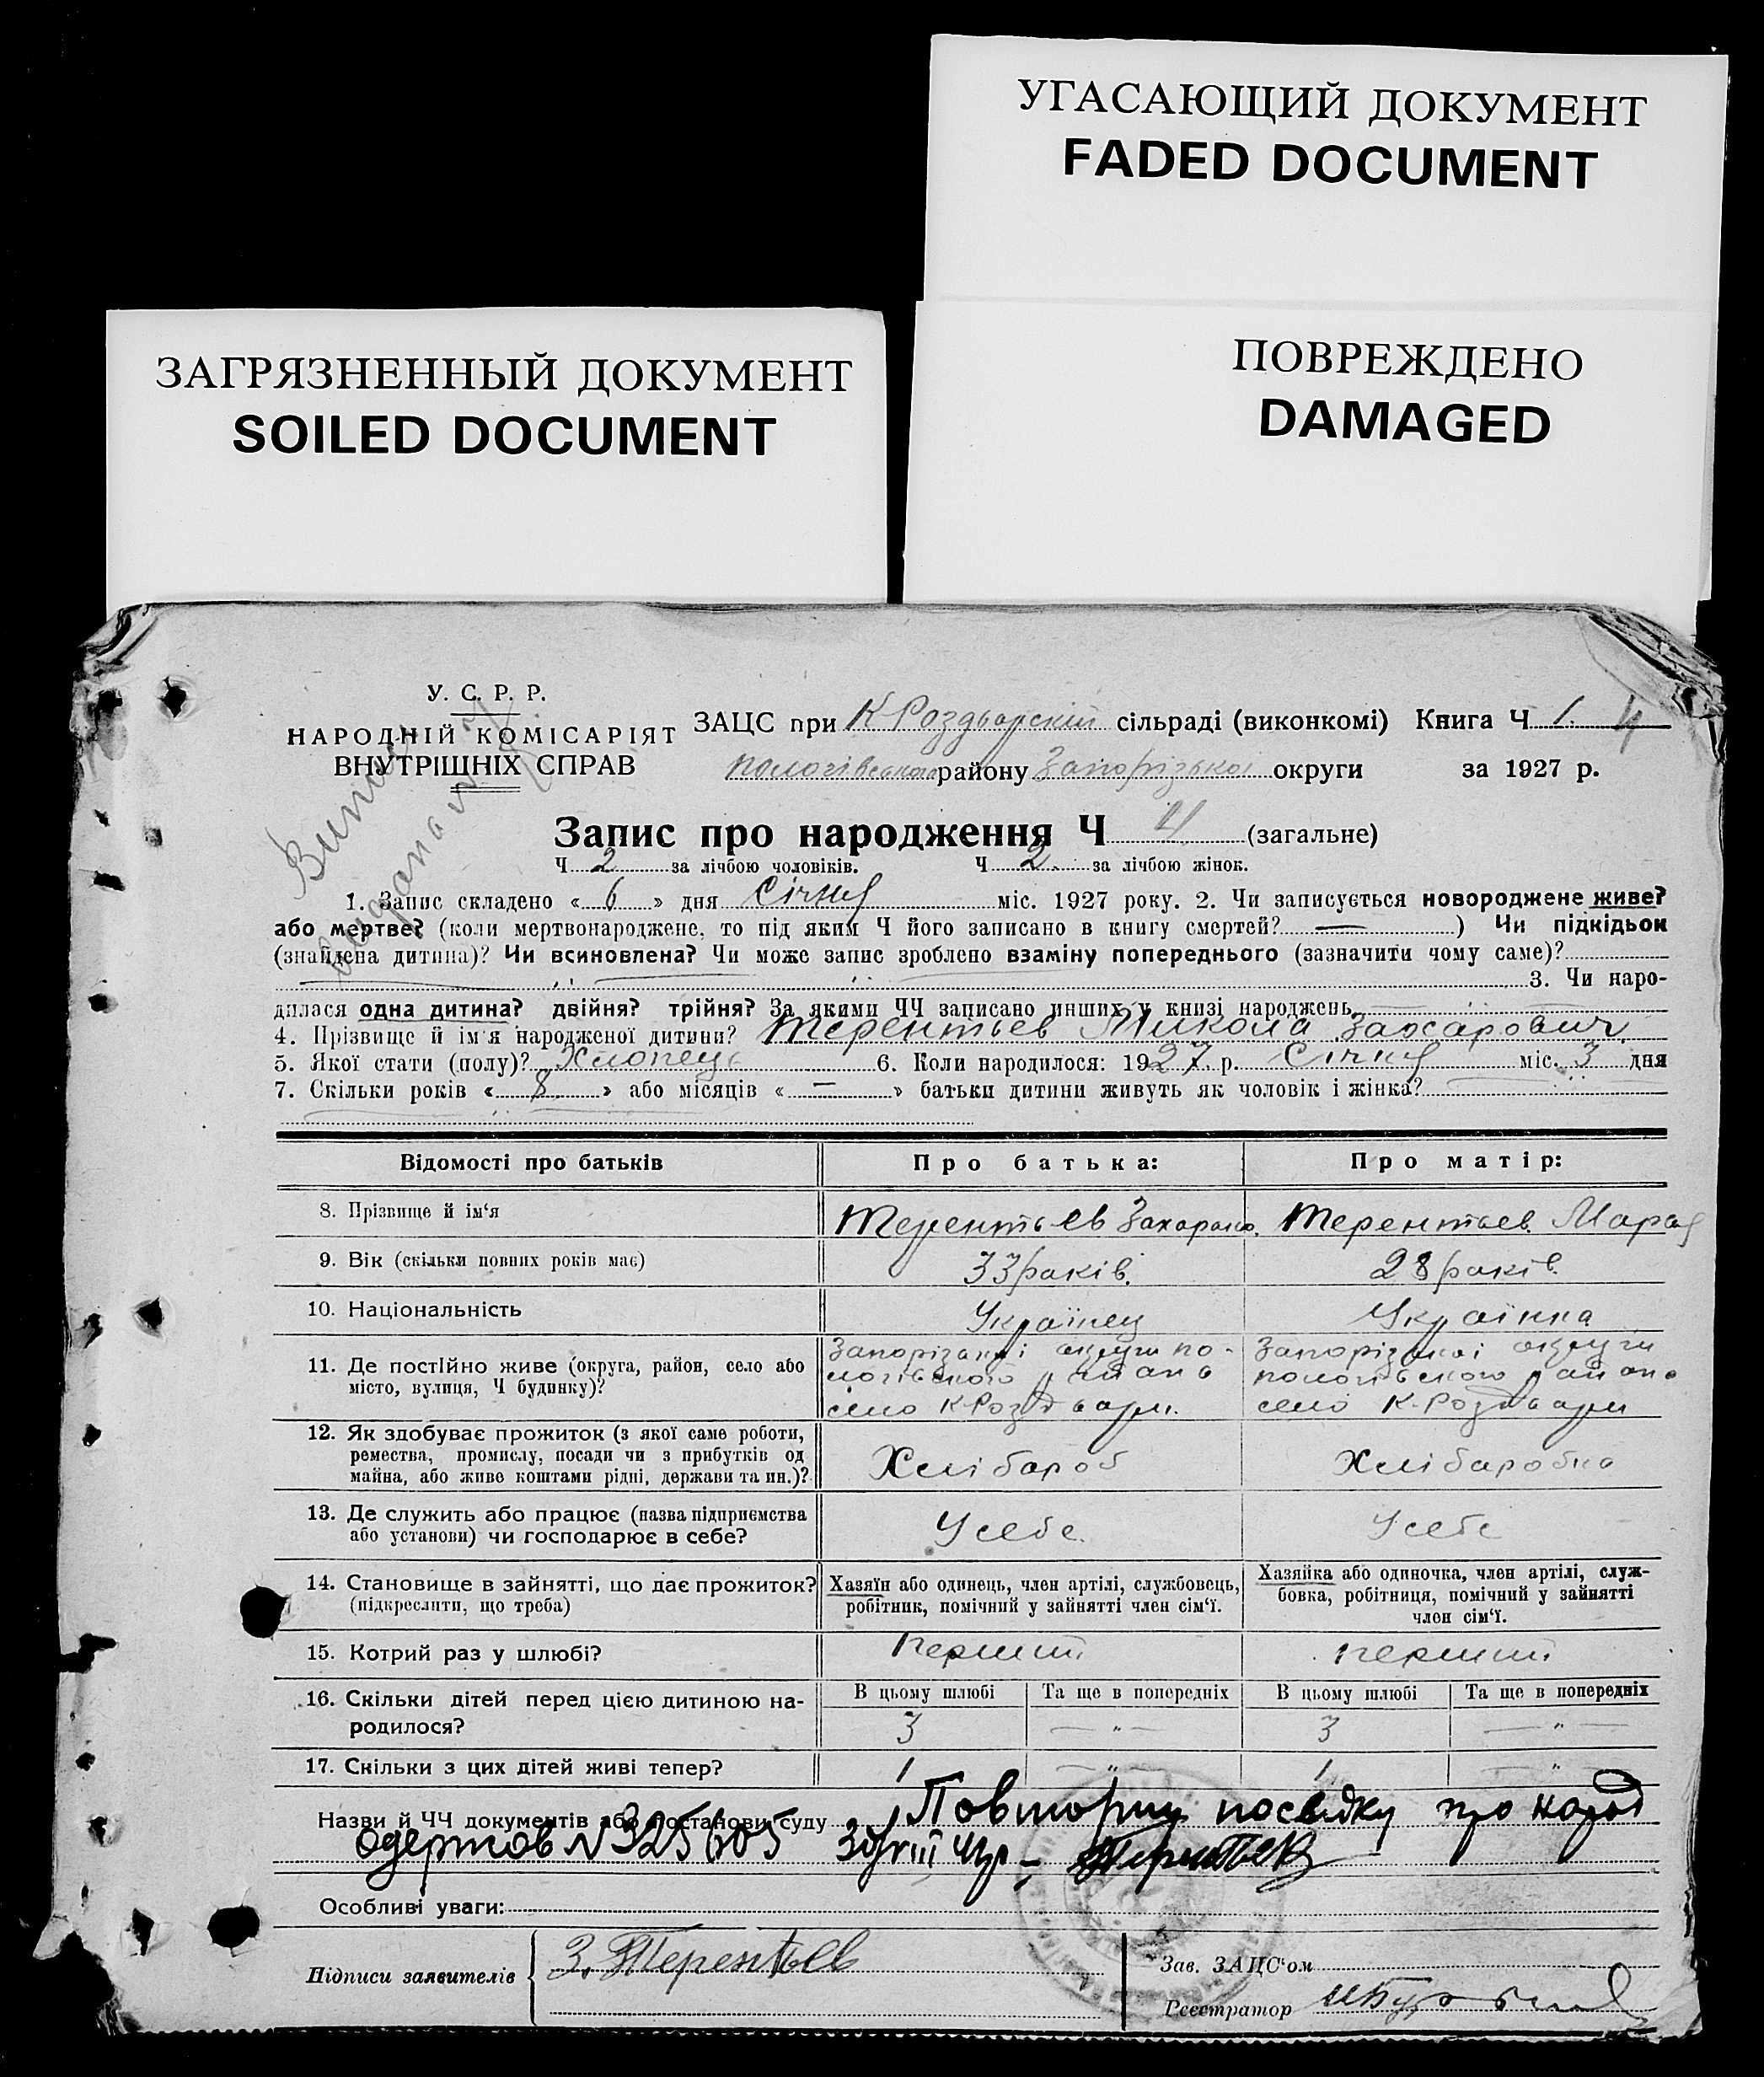 УГАСАЮЩИЙ ДОКУМЕНТ
FADED DOCUMENT
ПОВРЕЖДЕНО
DAMAGED
ЗАГРЯЗНЕННЫЙ ДОКУМЕНТ
SOILED DOCUMENT
У. С. Р. Р.
НАРОДНІЙ КОМІСАРІЯТ
ВНУТРІШНІХ СПРАВ
ЗАЦС при К Роздорській сільраді (виконкомі) Книга Ч 1. 4
Пологівського району Запорізької округи за 1927 р.
Запис про народження Ч 4 (загальне)
Ч 2 за лічбою чоловіків. Ч 2. за лічбою жінок.
1. Запис складено « 6 » дня Січня міс. 1927 року. 2. Чи записується новороджене живе?
або мертве? (коли мертвонароджене, то під яким Ч його записано в книгу смертей? — ) Чи підкідьок
(знайдена дитина)? Чи всиновлена? Чи може запис зроблено взаміну попереднього (зазначити чому саме)?
3. Чи наро-
дилася одна дитина? двійня? трійня? За якими ЧЧ записано инших у книзі народжень
4. Прізвище й ім'я народженої дитини? Терентьев Микола Захарович
5. Якої стати (полу)? Хлопець 6. Коли народилося: 1927 р. Січня міс. 3 дня
7. Скільки років « 8 » або місяців « — » батьки дитини живуть як чоловік і жінка?
Відомості про батьків Про батька: Про матір:
8. Прізвище й ім‘я Терентьев Терентьев Мария
9. Вік (скільки повних років має) 33 раків. 28 раків.
10. Національність Українец Українка
11. Де постійно живе (округа, район, село або
місто, вулиця, Ч будинку)?
Запорізькоі округи По-
логівського района
село К Роздоари.
Запорізькоі округи
Пологівського района
село К-Роздоари
12. Як здобуває прожиток (з якої саме роботи,
ремества, промислу, посади чи з прибутків од
майна, або живе коштами рідні, держави та ин.)?
Хлібароб Хлібаробка
13. Де служить або працює (назва підприємства
або установи) чи господарює в себе?
У себе. У себе
14. Становище в зайнятті, що дає прожиток?
(підкреслити, що треба)
Хазяїн або одинець, член артілі, службовець,
робітник, помічний у зайнятті член сім‘ї.
Хазяйка або одиночка, член артілі, служ-
бовка, робітниця, помічний у зайнятті
член сім‘ї.
15. Котрий раз у шлюбі? Перший Перший
16. Скільки дітей перед цією дитиною на-
родилося?
В цьому шлюбі Та ще в попередніх В цьому шлюбі Та ще в попередніх
3 — „ — 3 — „ —
17. Скільки з цих дітей живі тепер? 1 — „ — 1 „
Назви й ЧЧ документів або постанови суду Повторну посвідку про народ
одержов N 325605 Терентьев
Особливі уваги:
Підписи заявителів З. Терентьев
Зав. ЗАЦС‘ом
Реєстратор